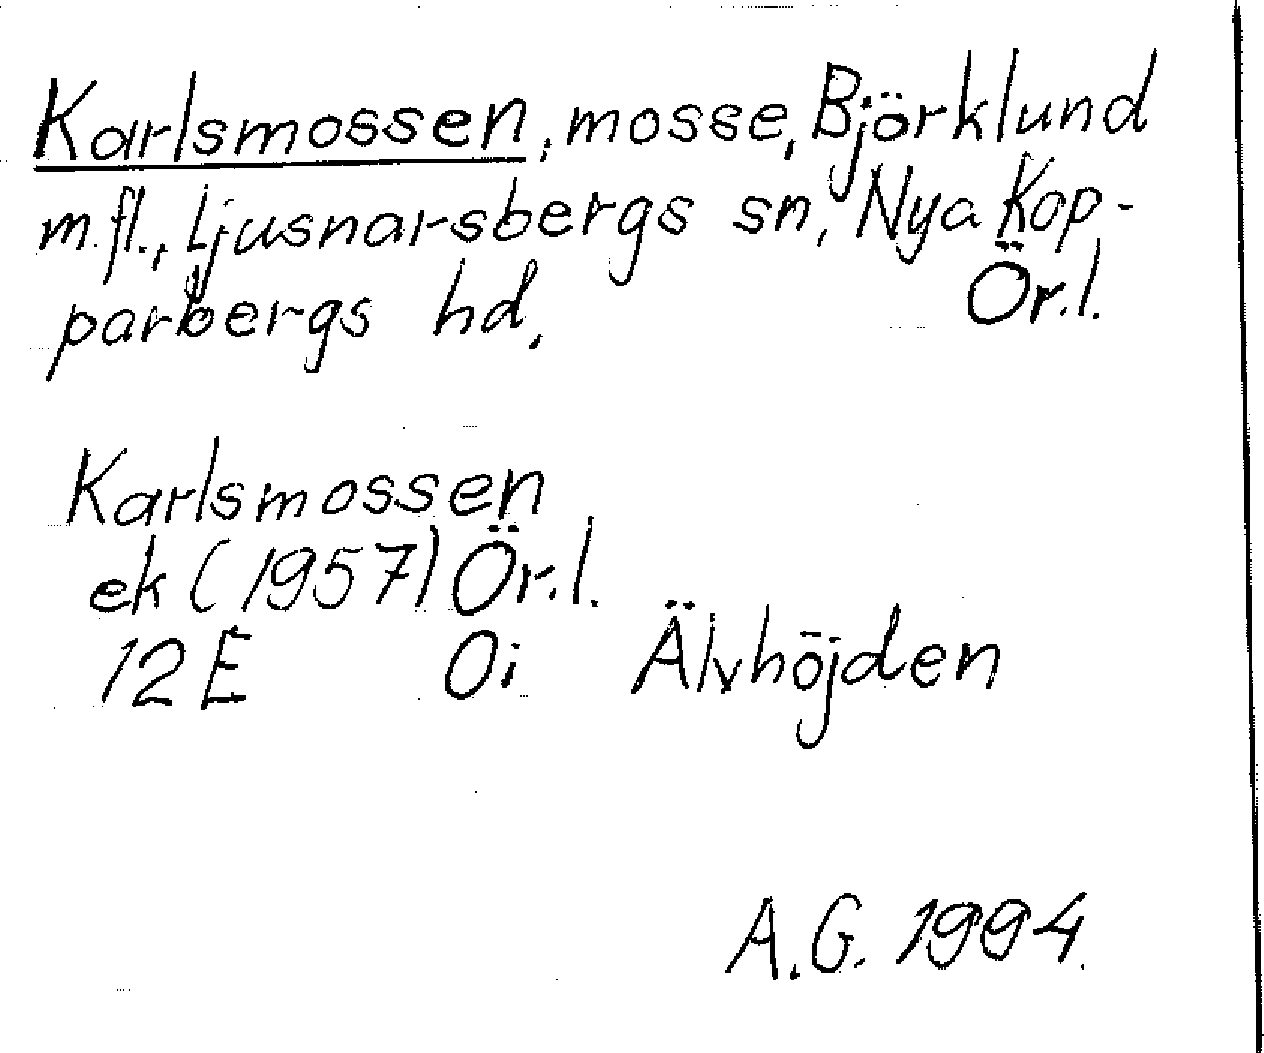 Karlsmossen, mosse, Björklund
m.fl., Ljusnarsbergs sn, Nya Kop-
parbergs hd, Ör.l.
Karlsmossen
ek (1957) Ör.l.
12E 0i Älvhöjden
A.G. 1994.